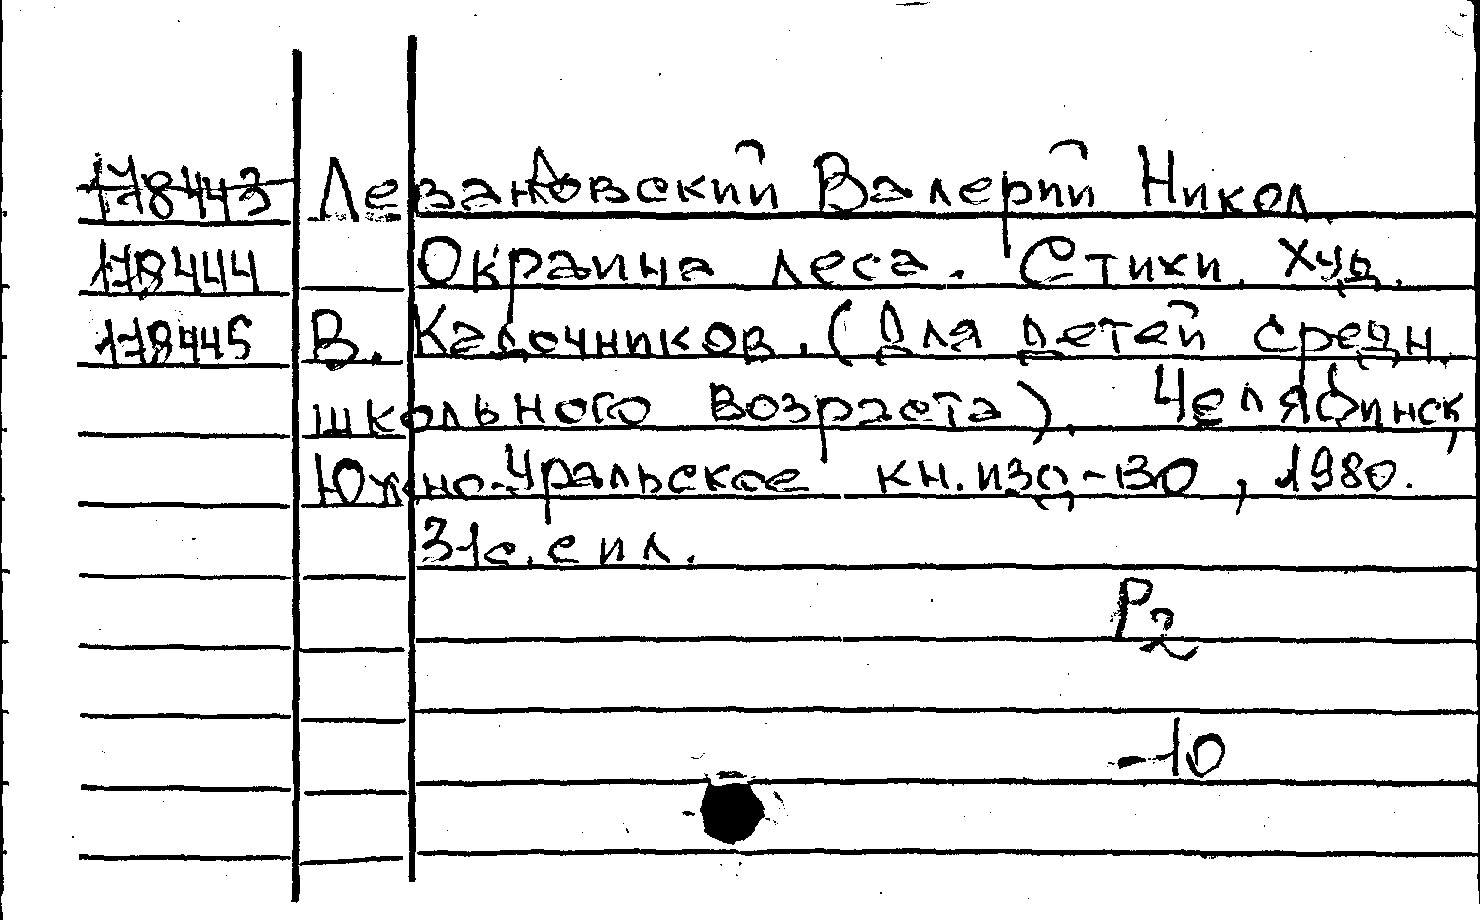 178443 Левановский Валерий Никол.
178444 Окраина леса. Стихи. Худ.
178445 В. Кадочников. (Для детей средн.
школьного возраста). Челябинск,
Южно-Уральское кн. изд-во, 1980.
31с. с ил.
Р2
-10